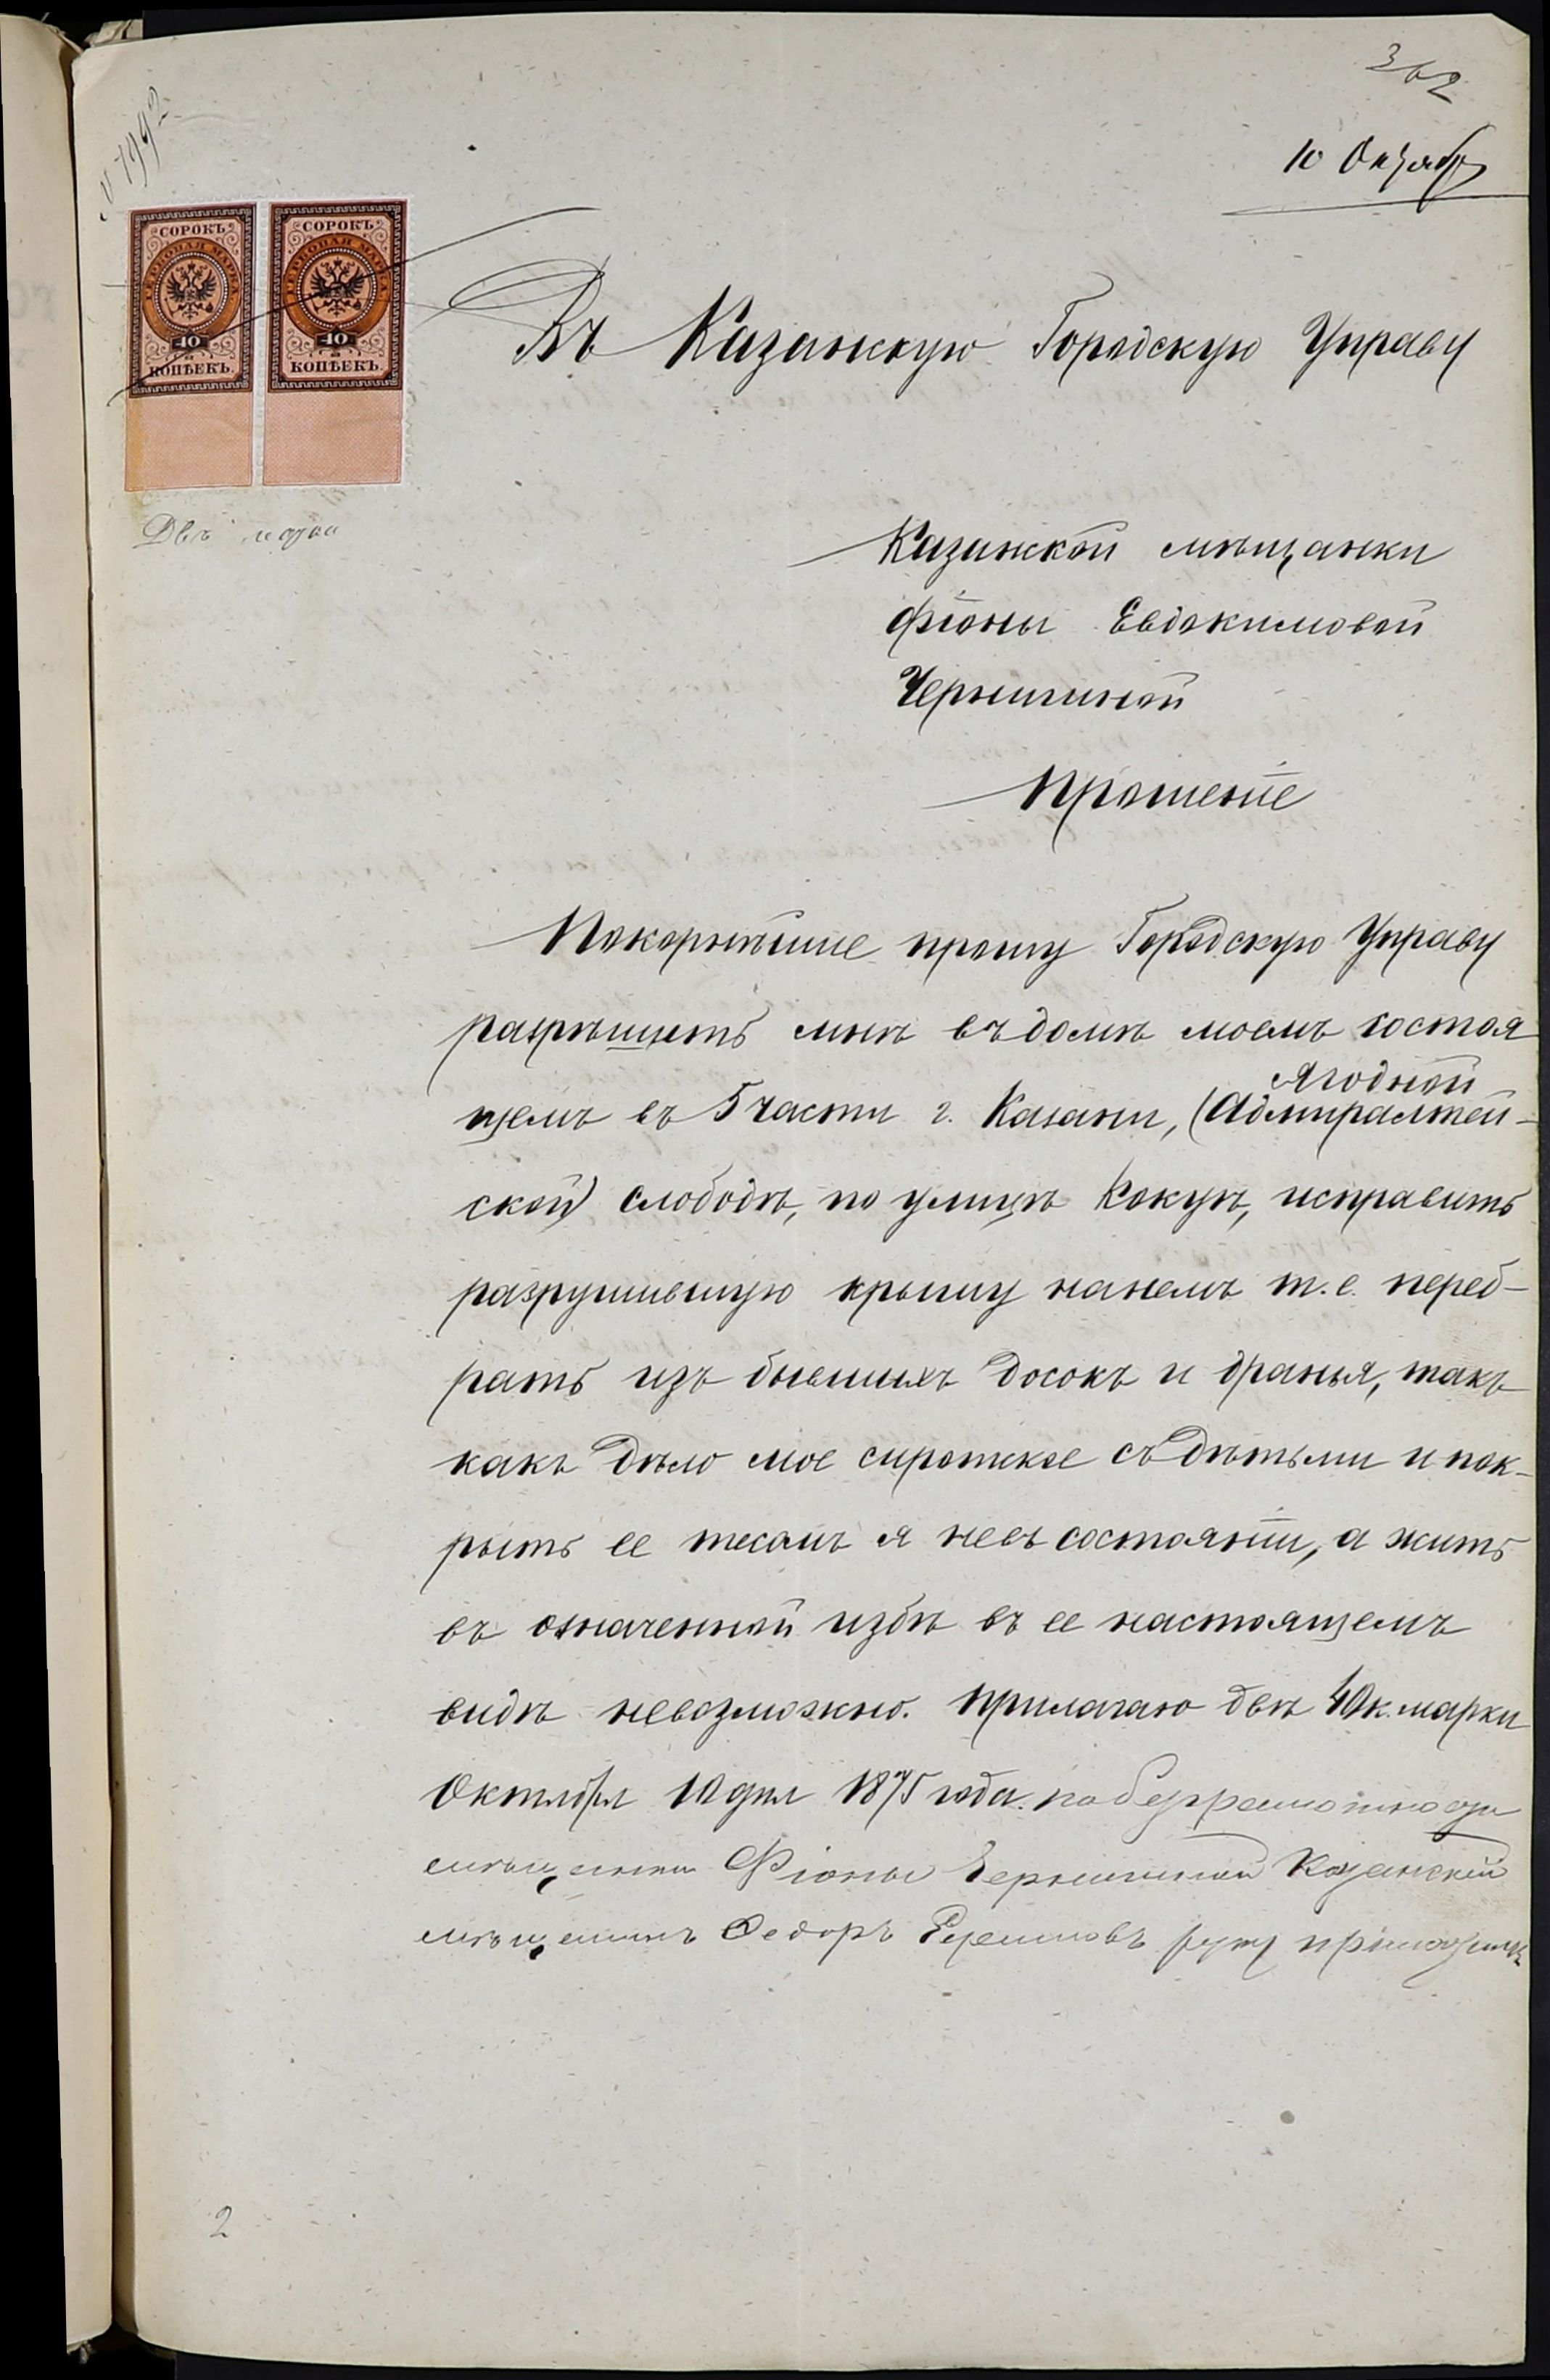 362
10 Октябр
№ 1992
СОРОКЪ СОРОКЪ
ГЕРБОВАЯ МАРКА ГЕРБОВАЯ МАРКА
40 40
КОПѢЕКЪ. КОПѢЕКЪ.
Двѣ марки
Въ Казанскую Городскую Управу
Казанской мѣщанки
Фіоны Евдокимовой
Чернышиной
Прошеніе
Покорнѣйше прошу Городскую Управу
разрѣшить мнѣ въ домѣ моемъ состоя
Ягодной
щемъ въ 5 части г. Казани, (Адмиралтей-
ской) слободѣ, по улицѣ Кокуѣ, исправить
разрушившую крышу на немъ т.е. переб-
рать изъ бывшихъ досокъ и дранья, такъ
какъ дѣло мое сиротское съ дѣтьми и пок-
рыть ее тесомъ я не въ состояніи, а жить
въ означенной избѣ въ ее настоящемъ
видѣ невозможно. Прилагаю двѣ 40 к. марки
Октября 10 дня 1875 года. по безграмотности
мѣщанки Фіоны Чернышиной Казанскій
мѣщанинъ Федоръ руку приложилъ
2